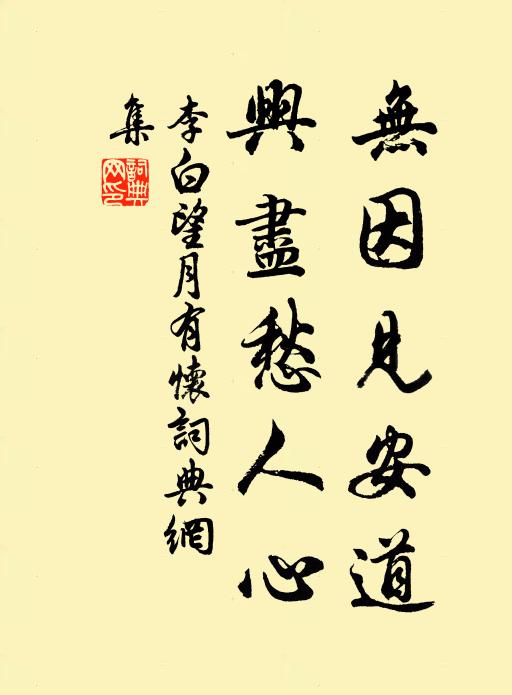 無因見安道
興盡愁人心
李白望月有懷詞典網
集
詞典
網印